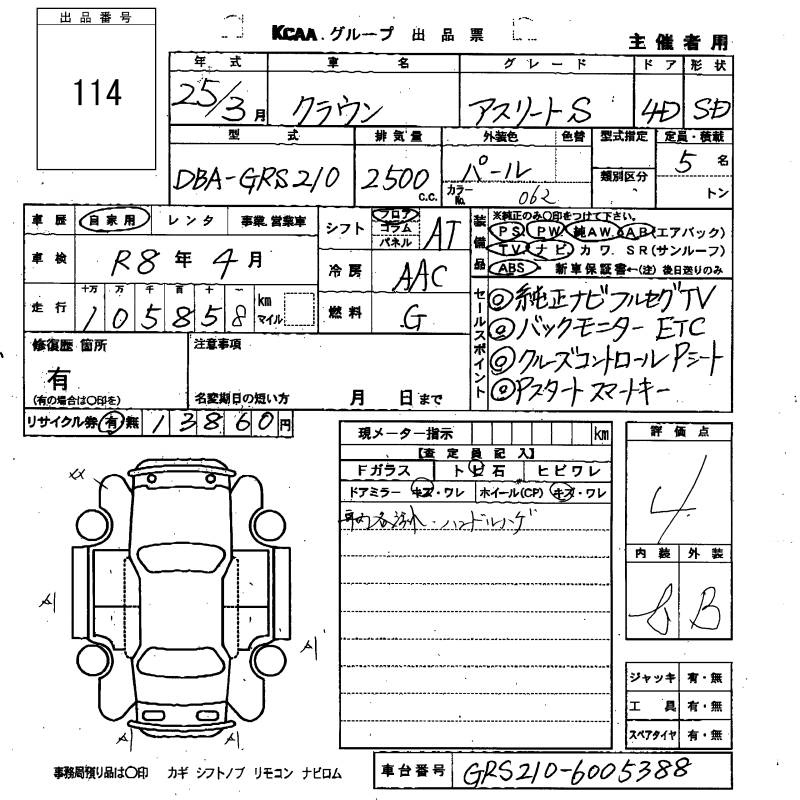 出品番号
114
KCAA グループ 出品票
主催者用
年式 車名 グレード ドア 形状
25/3月 クラウン アスリートS 4D SD
型式 排気量 外装色 色替 型式指定 定員・積載
DBA-GRS210 2500c.c. パール カラーNo. 062 類別区分 5名 トン
車歴 自家用 レンタ 事業.営業車
シフト フロア コラム パネル AT
車検 R8年4月
冷房 AAC
走行 十万 万 千 百 十 一 km マイル
105858
燃料 G
装備品
※純正のみ○印をつけて下さい。
PS PW 純AW AB(エアバック)
TV ナビ カワ SR(サンルーフ)
ABS 新車保証書←(注)後日送りのみ
セールスポイント
◎純正ナビフルセグTV
◎バックモニター ETC
◎クルーズコントロール Pシート
◎Pスタート スマートキー
修復歴 箇所
有
(有の場合は○印を)
注意事項
名変期日の短い方 月 日まで
リサイクル券 有・無 13860円
現メーター指示 km
【査定員記入】
Fガラス トビ石 ヒビワレ
ドアミラー キズ・ワレ ホイール(CP) キズ・ワレ
ハンドルハゲ
評価点
4
内装 外装
B
XX
A1
A1
A1 A1
ジャッキ 有・無
工具 有・無
スペアタイヤ 有・無
事務局預り品は○印 カギ シフトノブ リモコン ナビロム
車台番号 GRS210-6005388